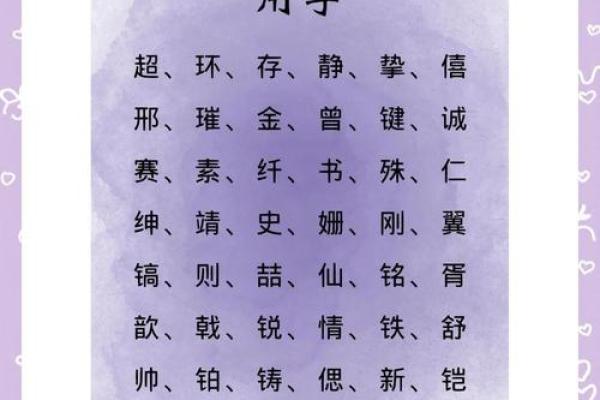 用字
超、环、存、静、挚、僖
邢、璀、金、曾、键、诚
赛、素、纤、书、殊、仁
绅、靖、史、姗、刚、翼
镐、则、喆、仙、铭、胥
歆、戟、锐、情、铁、舒
帅、铂、铸、偲、新、铠